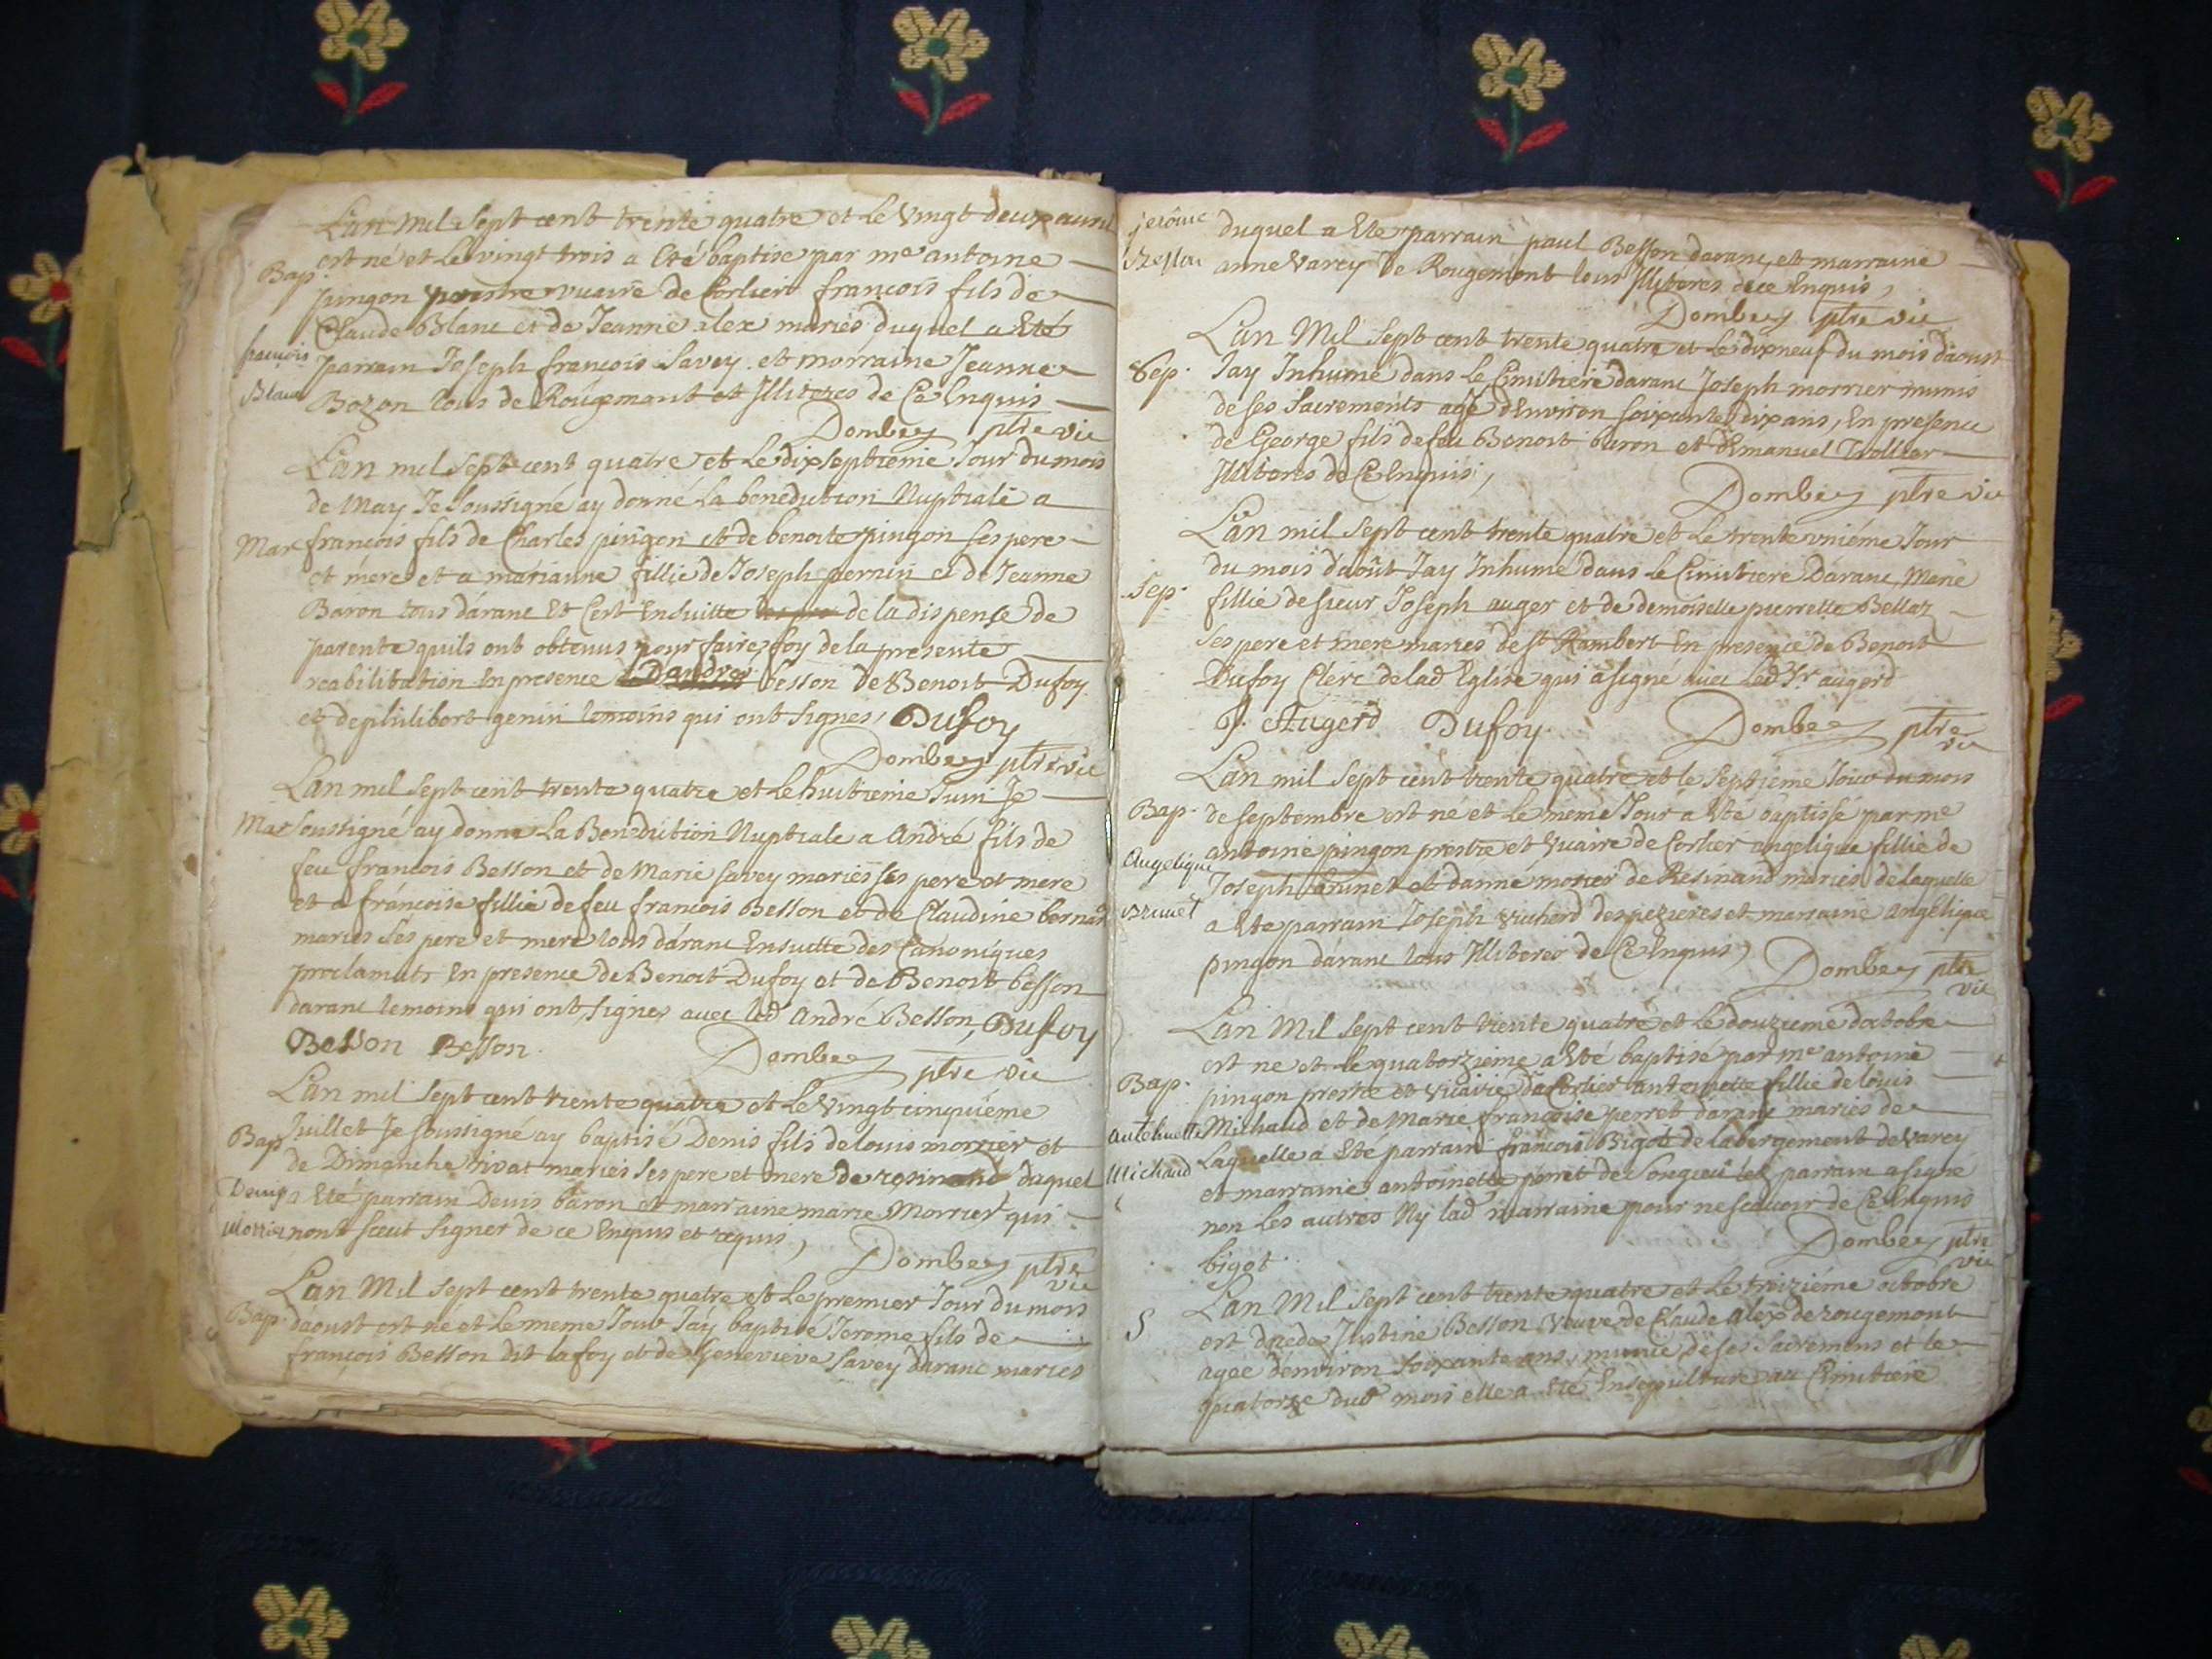 Lan mil sept cent trente quatre et le vingt deux avril
est né et le vingt trois a eté baptise par me antoine
Bap.
pingon prestre vicaire de Corlier françois fils de
Claude Blanc et de Jeanne alex mariés duquel a eté
françois
parrain Joseph françois Savey et morraine Jeanne
Blanc
Bozon tous de Rougemont et Illiteres de Ce Enquis
Dombey ptre vic
Lan mil sept cent quatre et le dix septieme Jour du mois
de May Je soussigné ay donné la benediction Nuptiale a
Mar
francois fils de Charles pingon et de benoite pingon ses pere
et mere et a marianne fillie de Joseph pernin et de Jeanne
Baron tous daranc Et Cert Ensuitte de la dispense de
parente quils ont obtenus pour faire foy de la presente
reabilitation En presence Dandré besson de Benoit Dufoy
et de philibert genin temoins qui ont signes, Dufoy
Dombey ptre vic
Lan mil sept cent trente quatre et le huitieme Juin Je
Mar
soussigné ay donne La Benediction Nuptiale a André fils de
feu francois Besson et de Marie Savey mariés ses pere et mere
et a françoise fillie de feu francois Besson et de Claudine bernard
maries ses pere et mere tous daranc Ensuitte des Canoniques
proclamats En presence de Benoit Dufoy et de Benoit besson
daranc temoins qui ont signes avec led André Besson, Dufoy
Besson Besson
Dombey ptre vic
Lan mil sept cent trente quatre et le vingt cinquiéme
Juillet Je soussigné ay baptisé Denis fils de louis morrier et
Bap
de Dimanche rivat mariés ses pere et mere de resinand duquel
Denis
a eté parrain Denis baron et marraine marie Morrier qui
Morrier
nont sceut signer de ce Enquis et requis,
Dombey ptre vic
Lan Mil sept cent trente quatre et le premier Jour du mois
Bap.
daoust est né et le meme Jour Jay baptisé Jerome fils de
françois Besson dit lafoy et de Genevieve Savey daranc maries
jerôme
duquel a Ete parrain paul Besson daranc, et marraine
Besson
anne Varey de Rougemont tous Illiteres de ce Enquis,
Dombey ptre vic
Lan Mil sept cent trente quatre et le dix neuf du mois daoust
Sep.
Jay Inhumé dans le Cimitiere daranc Joseph morrier munis
de ses Sacrements agé dEnviron soixante dix ans, En presence
de George fils de feu Benoit baron et dEmanuel Trollier
Illiteres de Ce Enquis,
Dombey ptre vic
Lan mil sept cent trente quatre et le trente uniéme Jour
du mois daoût Jay Inhumé dans le Cimitiere Daranc, Marie
Sep.
fillie de sieur Joseph auger et de demoiselle pierrette Bellaz
ses pere et mere maries de st Rambert En presence de Benoit
Dufoy Clerc de lad Eglise qui a signé avec led Sr augerd
J. Augerd Dufoy Dombey ptre
vic
Lan mil sept cent trente quatre et le septieme Jour du mois
Bap.
de septembre est né et le meme Jour a eté baptisé par me
antoine pingon prestre et vicaire de Corlier angelique fillie de
Angelique
Joseph brunet et danne morier de Resinand mariés de laquelle
Brunet
a Ete parrain Joseph vichard despezieres et marraine angelique
pingon daranc tous Illiteres de Ce Enquis,
Dombey ptre
vic
Lan Mil sept cent trente quatre et le douzieme doctobre
est ne et le quatorziéme a eté baptisé par me antoine
Bap.
pingon prestre et vicaire de Corlier antoinette fillie de louis
Anthelmette
Michaud et de Marie françoise perret daranc mariés de
Laquelle a eté parrain françois Bigot de labergement de varey
Michaud
et marraine antoinette perret de Songieu led parrain a signé
non les autres Ny lad marraine pour ne scavoir de Ce Enquis
bigot
Dombey ptre
vic
Lan Mil sept cent trente quatre et le treiziéme octobre
S
est decedé Justine Besson Veuve de Claude alex de rougemont
agee denviron soixante ans, munie de ses sacremens et le
quatorze dud mois elle a eté Ensepulturé au Cimitiere